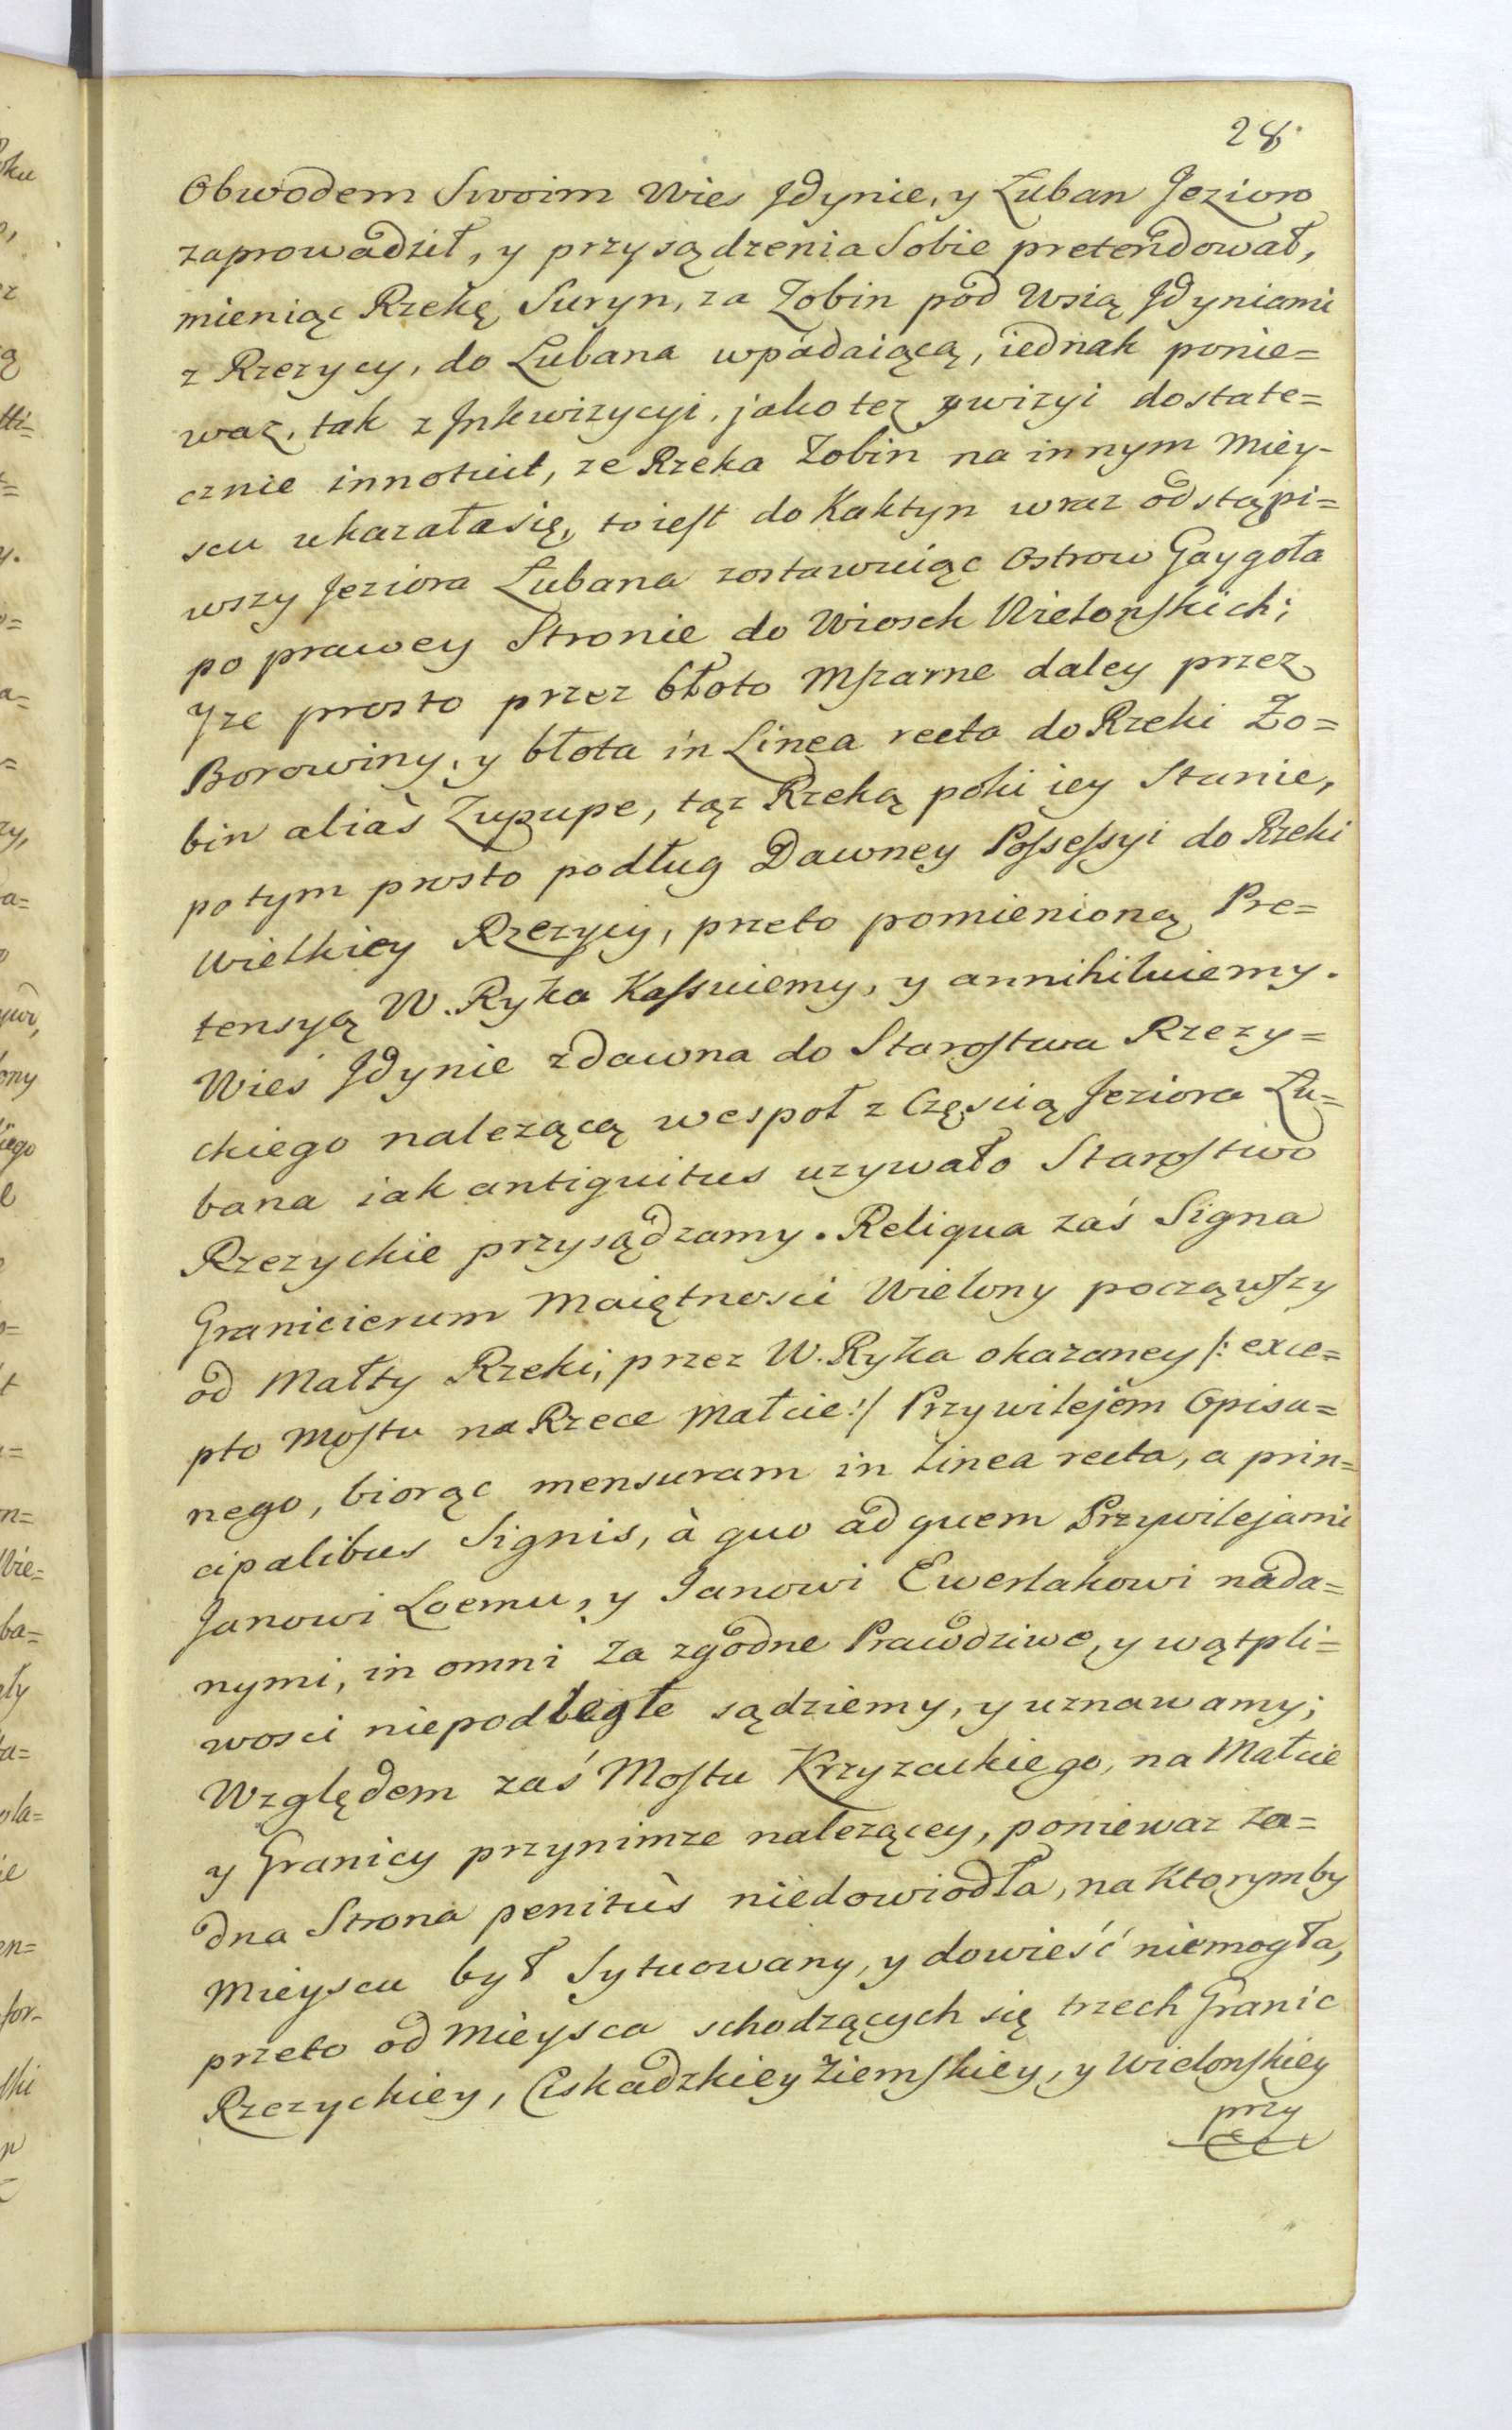 28
Obwodem Swoim Wies Jdynie, y Łuban Jezioro
zaprowadził, y przysądzenia Sobie pretendował,
mieniąc Rzekę Suryn, za Zobin pod Wsią Jdyniami
z Rzezycy, do Lubana wpadaiącą, iednak ponie=
waz, tak z Jnkwizycyi, jako tez y wizyi dostate=
cznie innotuit, ze Rzeka Zobin na innym Miey-
scu ukazała się, to iest do Kaktyn wraz odstąpi=
wszy Jeziora Łubana zostawuiąc Ostrow Gaygoła
po prawey Stronie do Wiosek Wielonskich;
Jze prosto przez błoto Mszarne daley przez
Borowiny, y błota in Linea recta do Rzeki Zo=
bin aliàs Zupupe, tąz Rzeką poki iey Stanie,
potym prosto podług Dawney Possessyi do Rzeki
Wielkiey Rzezycy, przeto pomienioną Pre=
tensyą W. Ryka Kassuiemy, y annihiluiemy.
Wieś Jdynie zdawna do Starostwa Rzezy=
ckiego nalezącą wespoł z Częscią Jeziora Lu=
bana iak antiquitus uzywało Starostwo
Rzezyckie przysądzamy. Reliqua zaś Signa
Granicierum Maiętnosci Wielony począwszy
od Małty Rzeki, przez W. Ryka okazaney /: exce=
pto Mostu na Rzece Małcie :/ Przywilejem Opisa=
nego, biorąc mensuram in linea recta, a prin=
cipalibus Signis, à quo ad quem Przywilejami
Janowi Loemu, y Janowi Ewerlakowi nada=
nymi, in omni za zgodne Prawdziwe, y wątpli=
wosci niepodległe sądziemy, y uznawamy;
Względem zaś Mostu Krzyzackiego, na Małcie
y Granicy przynimze nalezącey, poniewaz za=
dna Strona penitùs niedowiodła, na Ktorymby
Mieyscu był Sytuowany, y dowieść niemogła,
przeto od Mieysca schodzących się trzech Granic
Rzezyckiey, Ciskadzkiey Ziemskiey, y Wielonskiey
przy